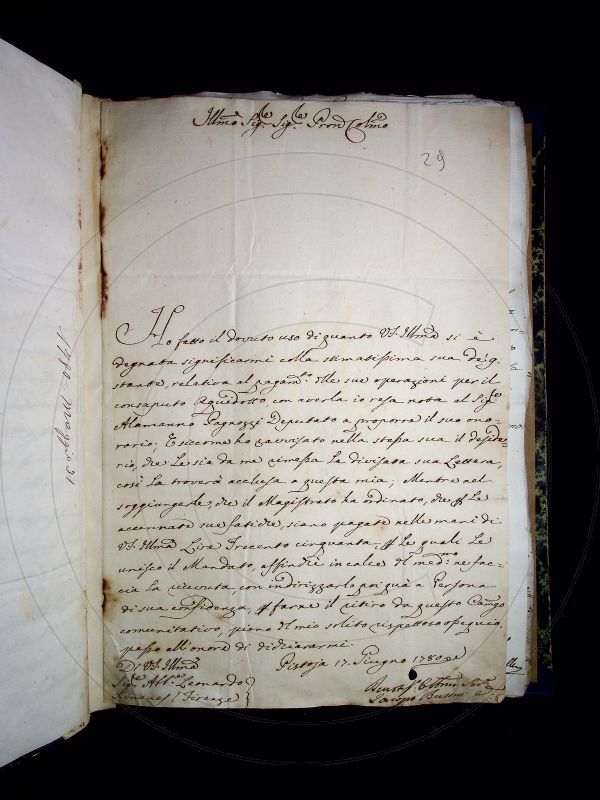 Illmo Sigre Sigre Prone Colmo
29
Ho fatto il dovuto uso di quanto VS. Illma si è
degnata significarmi colla stimatissima sua de' 9.
stante, relativa al pagamto delle sue operazioni per il
consaputo Aquedotto con averla io resa nota al Sigre
Alamanno Pagnozzi Deputato a proporre il suo ono-
rario; E siccome ho ravvisato nella stessa sua il deside-
rio, che Le sia da me rimessa la divisata sua Lettera,
così La troverà acclusa a questa mia; Mentre nel
soggiungerle, che il Magistrato ha ordinato, che p Le
accennate sue fatiche, siano pagate nelle mani di
VS. Illma Lire Trecento cinquanta, p Le quali Le
unisco il Mandato, affinchè in calce del medmo ne fac-
cia la ricevuta, con indirizzarlo poi quà a Persona
di sua confidenza, p farne il ritiro da questo Camgo
comunitativo, pieno del mio solito rispettoso ossequio
passo all'onore di dichiararmi
Di VS. Illma
Pistoja 17. Giugno 1780
Sigre Abte Leonardo
Ximenes (Firenze)
Jacopo
1780 Maggio 31